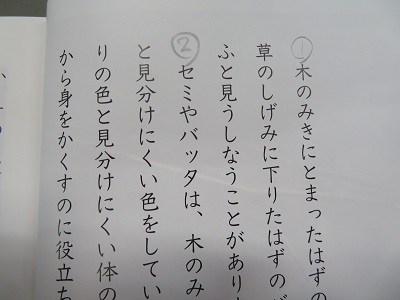 ①木のみきにとまったはずの
草のしげみに下りたはずの
ふと見うしなうことがあり
②セミやバッタは、木のみ
と見分けにくい色をしてい
りの色と見分けにくい体の
から身をかくすのに役立ち